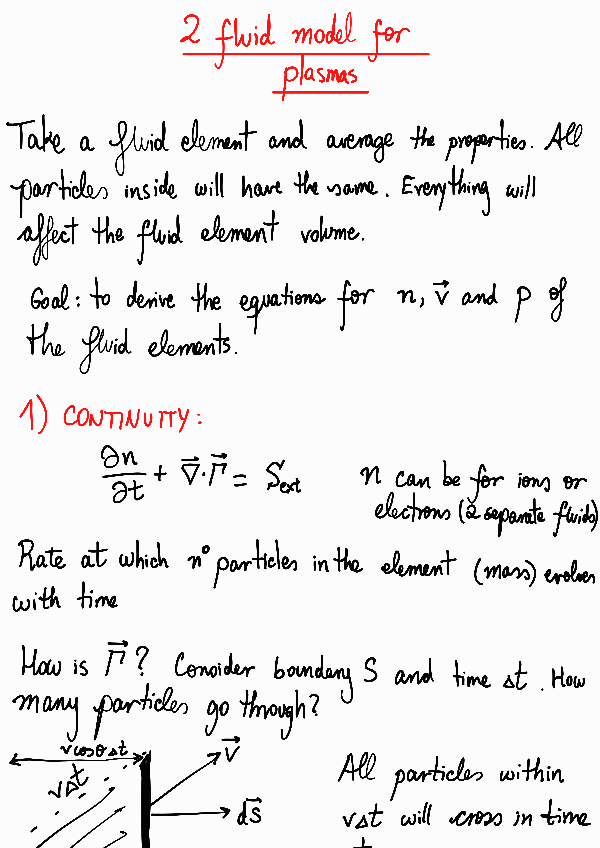 2 fluid model for
plasmas
Take a fluid element and average the properties. All
particles inside will have the same. Everything will
affect the fluid element volume.
Goal: to derive the equations for n, v⃗ and p of
the fluid elements.
1) CONTINUITY:
∂n/∂t + ∇⃗·Γ⃗ = S_ext
n can be for ions or
electrons (2 separate fluids)
Rate at which nº particles in the element (mass) evolves
with time
How is Γ⃗? Consider boundary S and time Δt. How
many particles go through?
v cosθ Δt
v⃗
vΔt
dS⃗
All particles within
vΔt will cross in time